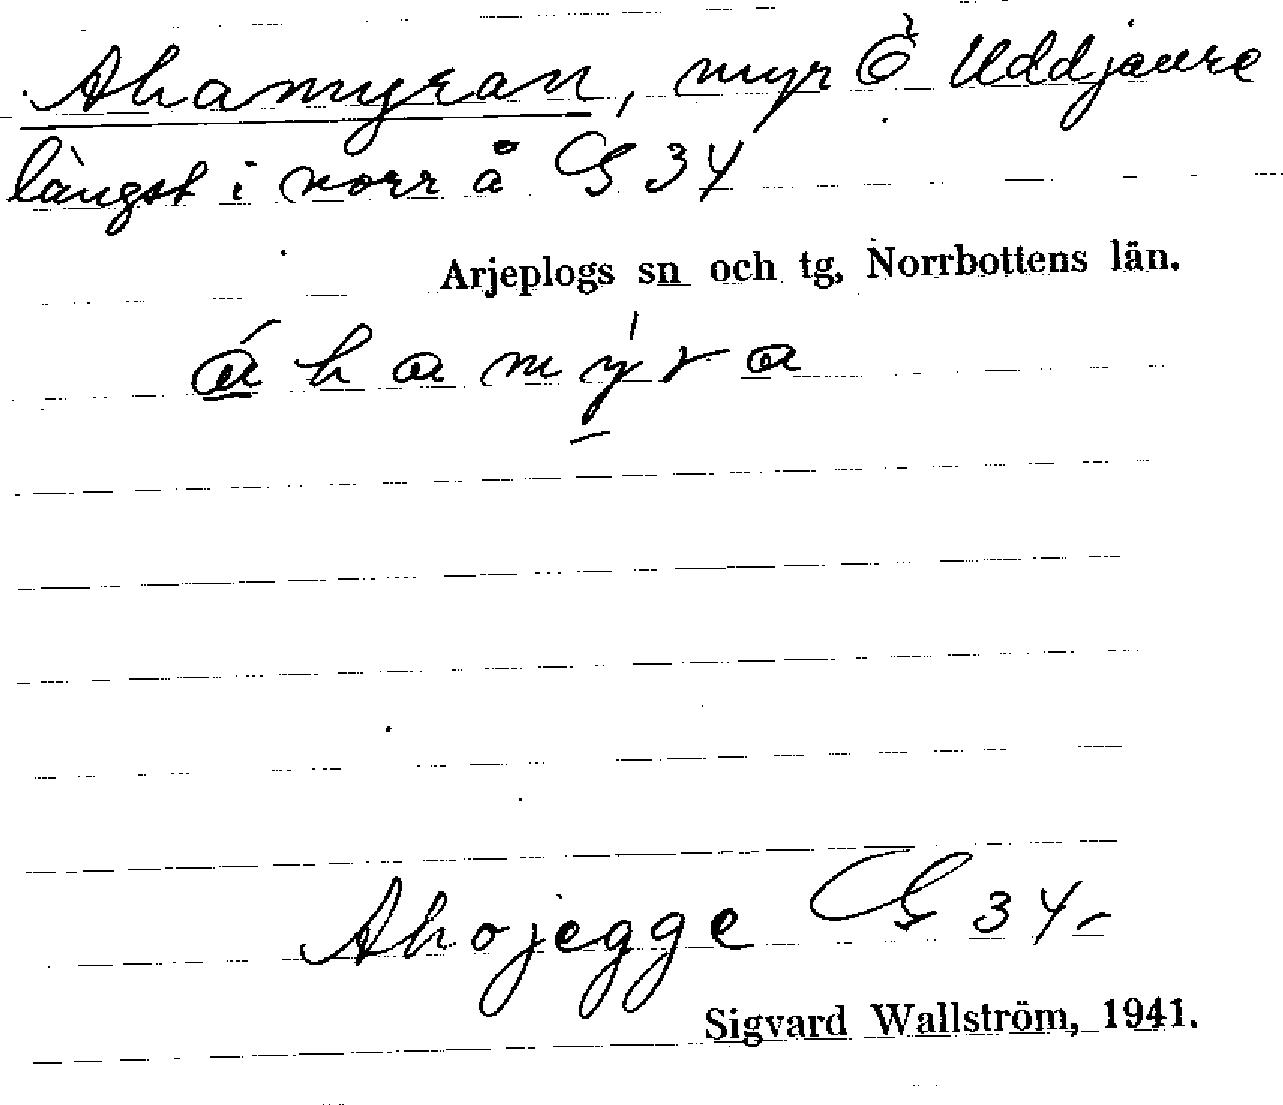 Ahamyran, myr Ö Uddjaure
längst i norr å G 34
Arjeplogs sn och tg, Norrbottens län.
áhamýra
Ahojegge G 34
Sigvard Wallström, 1941.